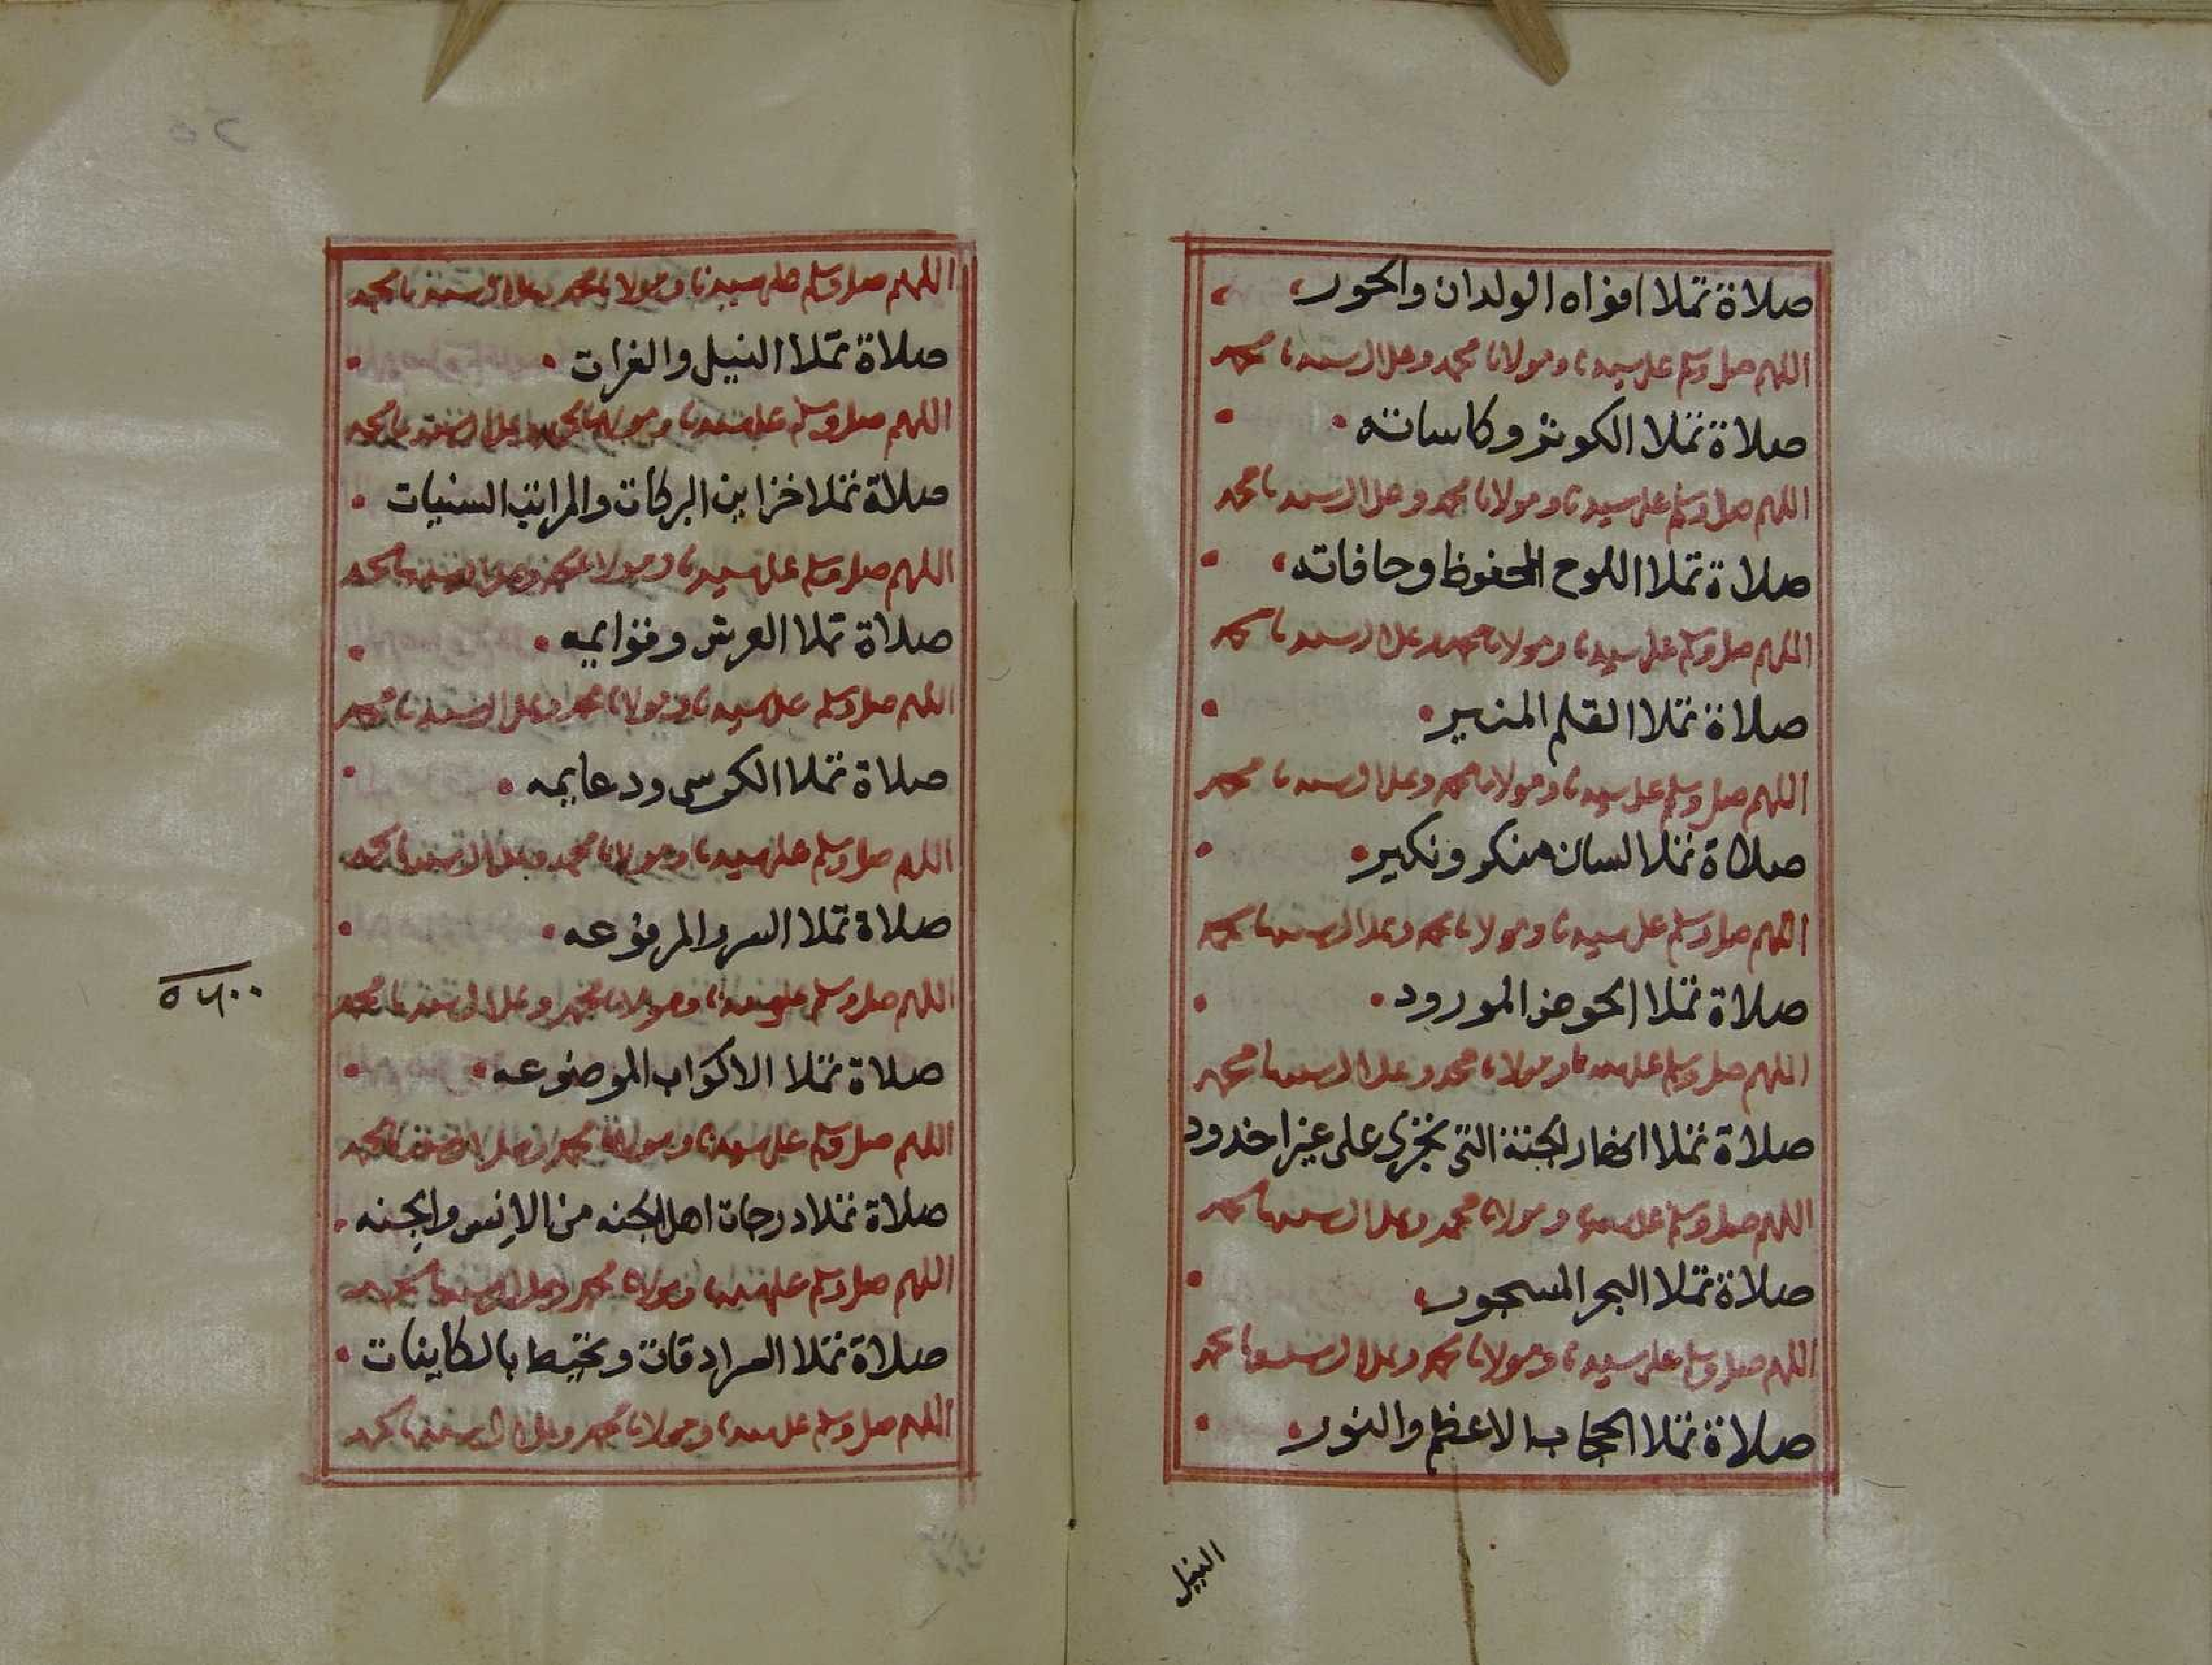 صلاة تملا افواه الولدان والحور
اللهم صل وسلم على سيدنا ومولانا محمد وعلى ال سيدنا محمد
صلاة تملا الكوثر وكاساته
اللهم صل وسلم على سيدنا ومولانا محمد وعلى ال سيدنا محمد
صلاة تملا اللوح المحفوظ وحافاته
اللهم صل وسلم على سيدنا ومولانا محمد وعلى ال سيدنا محمد
صلاة تملا القلم المنير
اللهم صل وسلم على سيدنا ومولانا محمد وعلى ال سيدنا محمد
صلاة تملا لسان منكر ونكير
اللهم صل وسلم على سيدنا ومولانا محمد وعلى ال سيدنا محمد
صلاة تملا الحوض المورود
اللهم صل وسلم على سيدنا ومولانا محمد وعلى ال سيدنا محمد
صلاة تملا انهار الجنة التى تجرى على غير اخدود
اللهم صل وسلم على سيدنا ومولانا محمد وعلى ال سيدنا محمد
صلاة تملا البحر المسجور
اللهم صل وسلم على سيدنا ومولانا محمد وعلى ال سيدنا محمد
صلاة تملا الحجاب الاعظم والنور
النيل
اللهم صل وسلم على سيدنا ومولانا محمد وعلى ال سيدنا محمد
صلاة تملا النيل والفرات
اللهم صل وسلم على سيدنا ومولانا محمد وعلى ال سيدنا محمد
صلاة تملا خزاين البركات والمراتب السنيات
اللهم صل وسلم على سيدنا ومولانا محمد وعلى ال سيدنا محمد
صلاة تملا العرش وقوايمه
اللهم صل وسلم على سيدنا ومولانا محمد وعلى ال سيدنا محمد
صلاة تملا الكرسى ودعايمه
اللهم صل وسلم على سيدنا ومولانا محمد وعلى ال سيدنا محمد
صلاة تملا السرر المرفوعه
اللهم صل وسلم على سيدنا ومولانا محمد وعلى ال سيدنا محمد
صلاة تملا الاكواب الموضوعه
اللهم صل وسلم على سيدنا ومولانا محمد وعلى ال سيدنا محمد
صلاة تملا درجات اهل الجنه من الانس والجنه
اللهم صل وسلم على سيدنا ومولانا محمد وعلى ال سيدنا محمد
صلاة تملا السرادقات وتحيط بالكاينات
اللهم صل وسلم على سيدنا ومولانا محمد وعلى ال سيدنا محمد